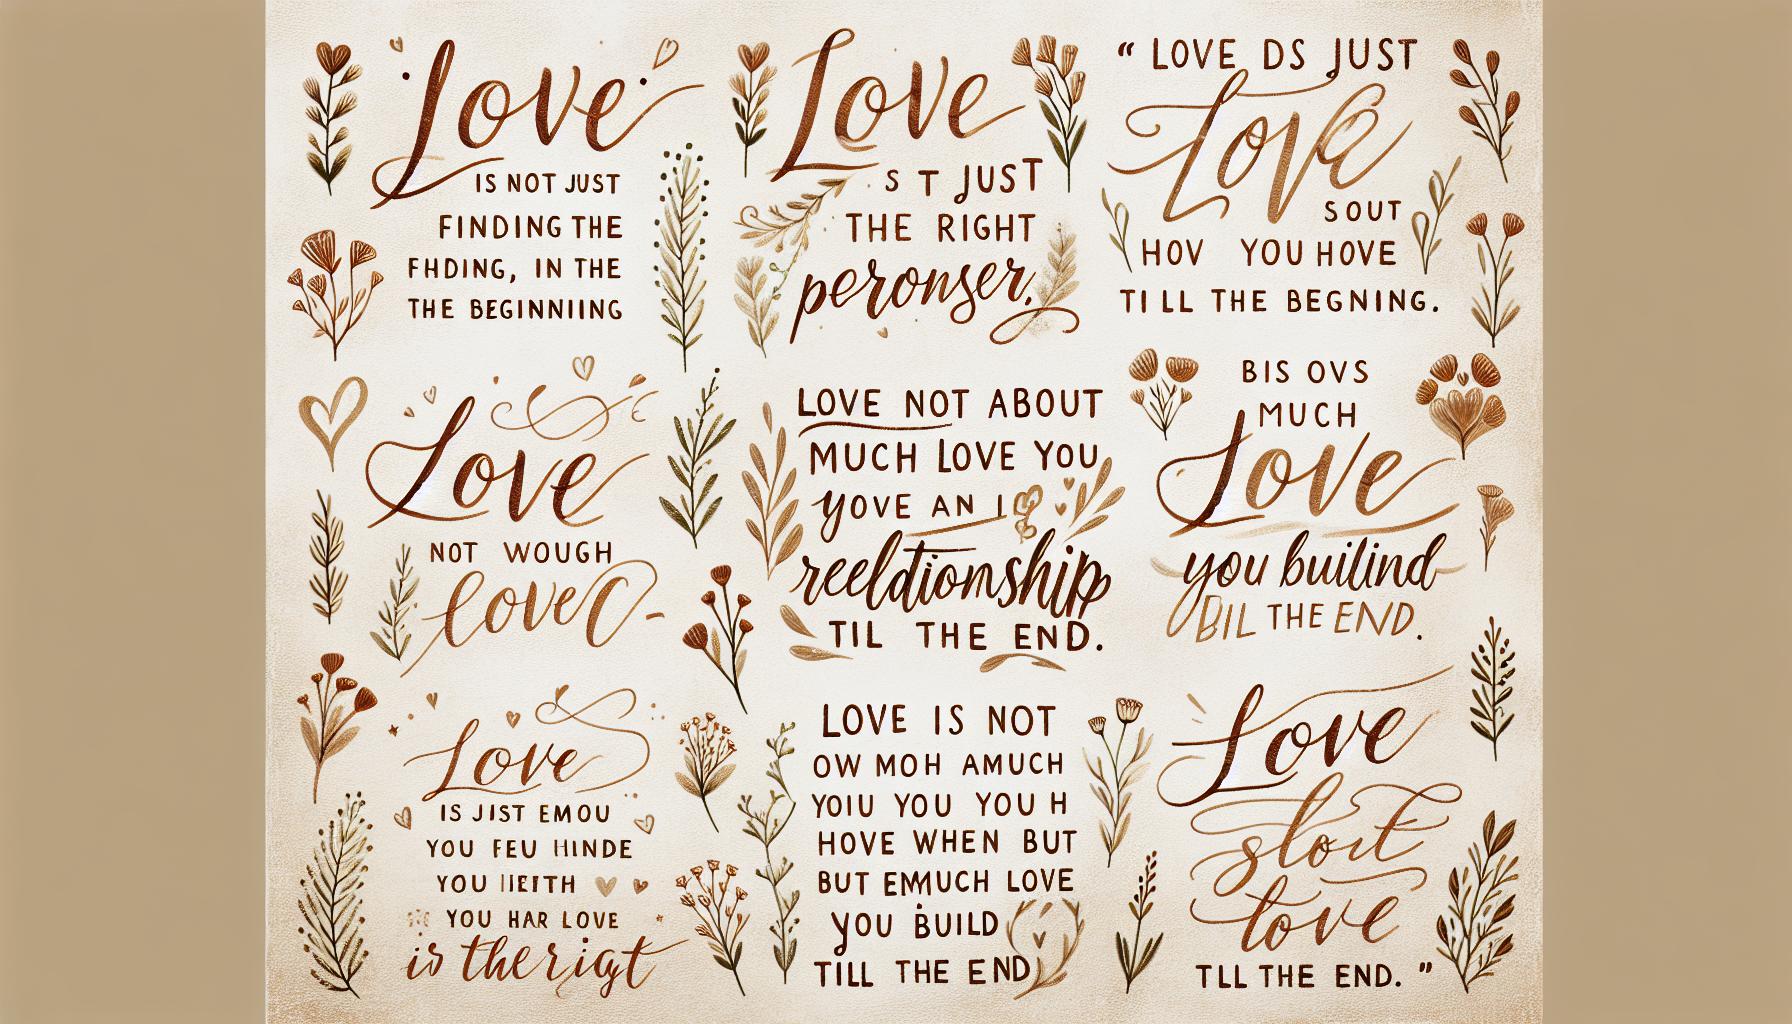 Love
IS NOT JUST
FINDING THE
FHDING, IN THE
THE BEGINNIING
Love
S T JUST
THE RIGHT
peronser,
“ LOVE DS JUST
Love
SOUT
HOV YOU HOVE
TI LL THE BEGNING.
Love
NOT WOUGH
loveC-
LOVE NOT ABOUT
MUCH LOVE YOU
YOVE AN I
reeldtionship
TIL THE END.
BIS OVS
MUCH
Love
you builind
BIL THE END.
Love
IS JIST EMOU
YOU FEU HINDE
YOU HEITH
YOU HAR LOVE
is the rigt
LOVE IS NOT
OW MOH AMUCH
YOIU YOU YOU H
HOVE WHEN BUT
BUT EMMUCH LOVE
YOU BUILD
TILL THE END
Love
slort
love
TLL THE END. ”